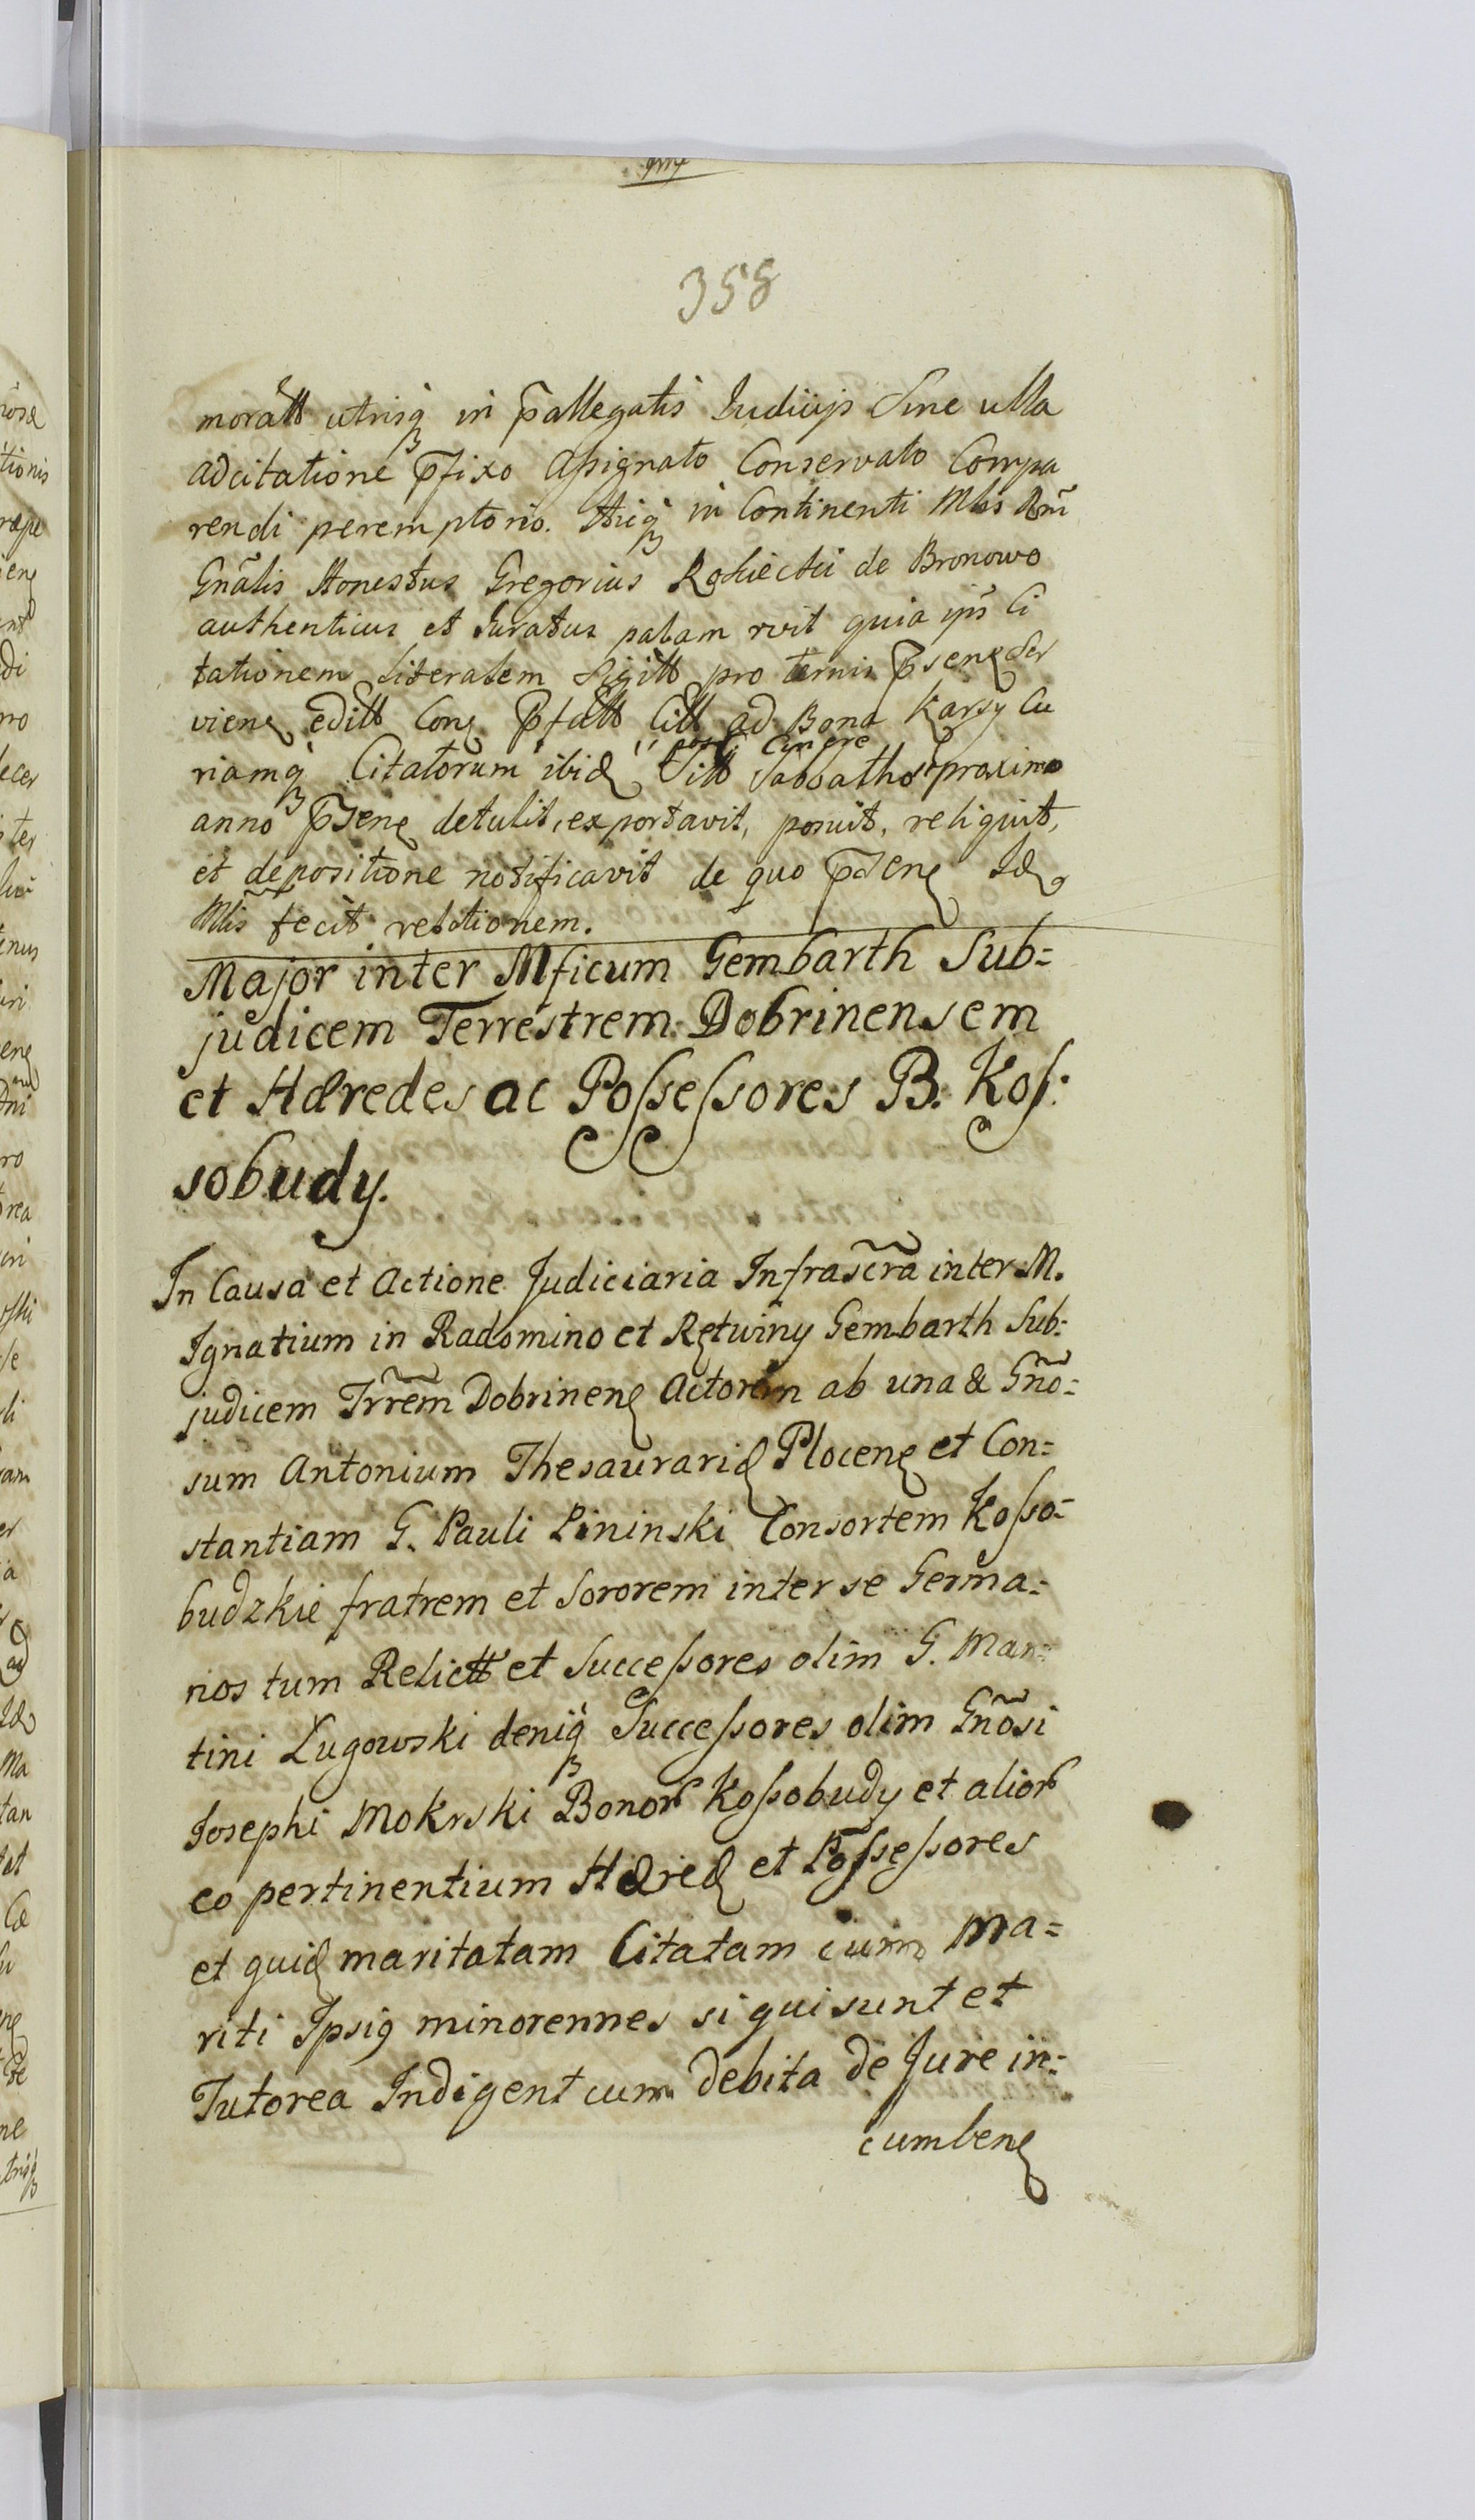 358
moratt utrisq in pallegatis Iudiciys Sine ulla
adcitatione pfixo assignato Conservato Compa
rendi peremptorio. Hicq in Continenti Mlis Rni
Gnalis Honestus Gregorius de Bronowo
authenticus et Iuratus palam rvit quia ips Ci
tationem Literalem Sigitt pro pseng Ser
vieng editt Cong pfatt Citt ad Bona Karsy Cu
riamq Citatorum ibid Sabbatho proximo
anno pseng detulit, exportavit, posuit, reliquit,
et depositione notificavit de quo pseng Id
Mlis fecit relationem.
Major inter Mficum Gembarth Sub=
judicem Terrestrem Dobrinensem
et Hæredes ac Possessores B. Kos:
sobudy.
In Causa et Actione Judiciaria Infrascra inter M.
Ignatium in Radomino et Rętwiny Gembarth Sub:
judicem Trrem Dobrineng Actorem ab una & Gno=
sum Antonium Thesaurarid Ploceng et Con=
stantiam G. Pauli Lininski Consortem Kosso=
budzkie fratrem et Sororem inter se Germa=
nos tum Relictt et Successores olim G. Mar=
tini Lugowski deniq Successores olim Gnosi
Josephi Mokrski Bonor Kossobudy et alior
eo pertinentium Hæred et Possessores
et quid maritatam Citatam cum Ma=
riti Ipsiq minorennes si qui sunt et
Tutorea Indigent cum debita de Jure in=
cumbeng